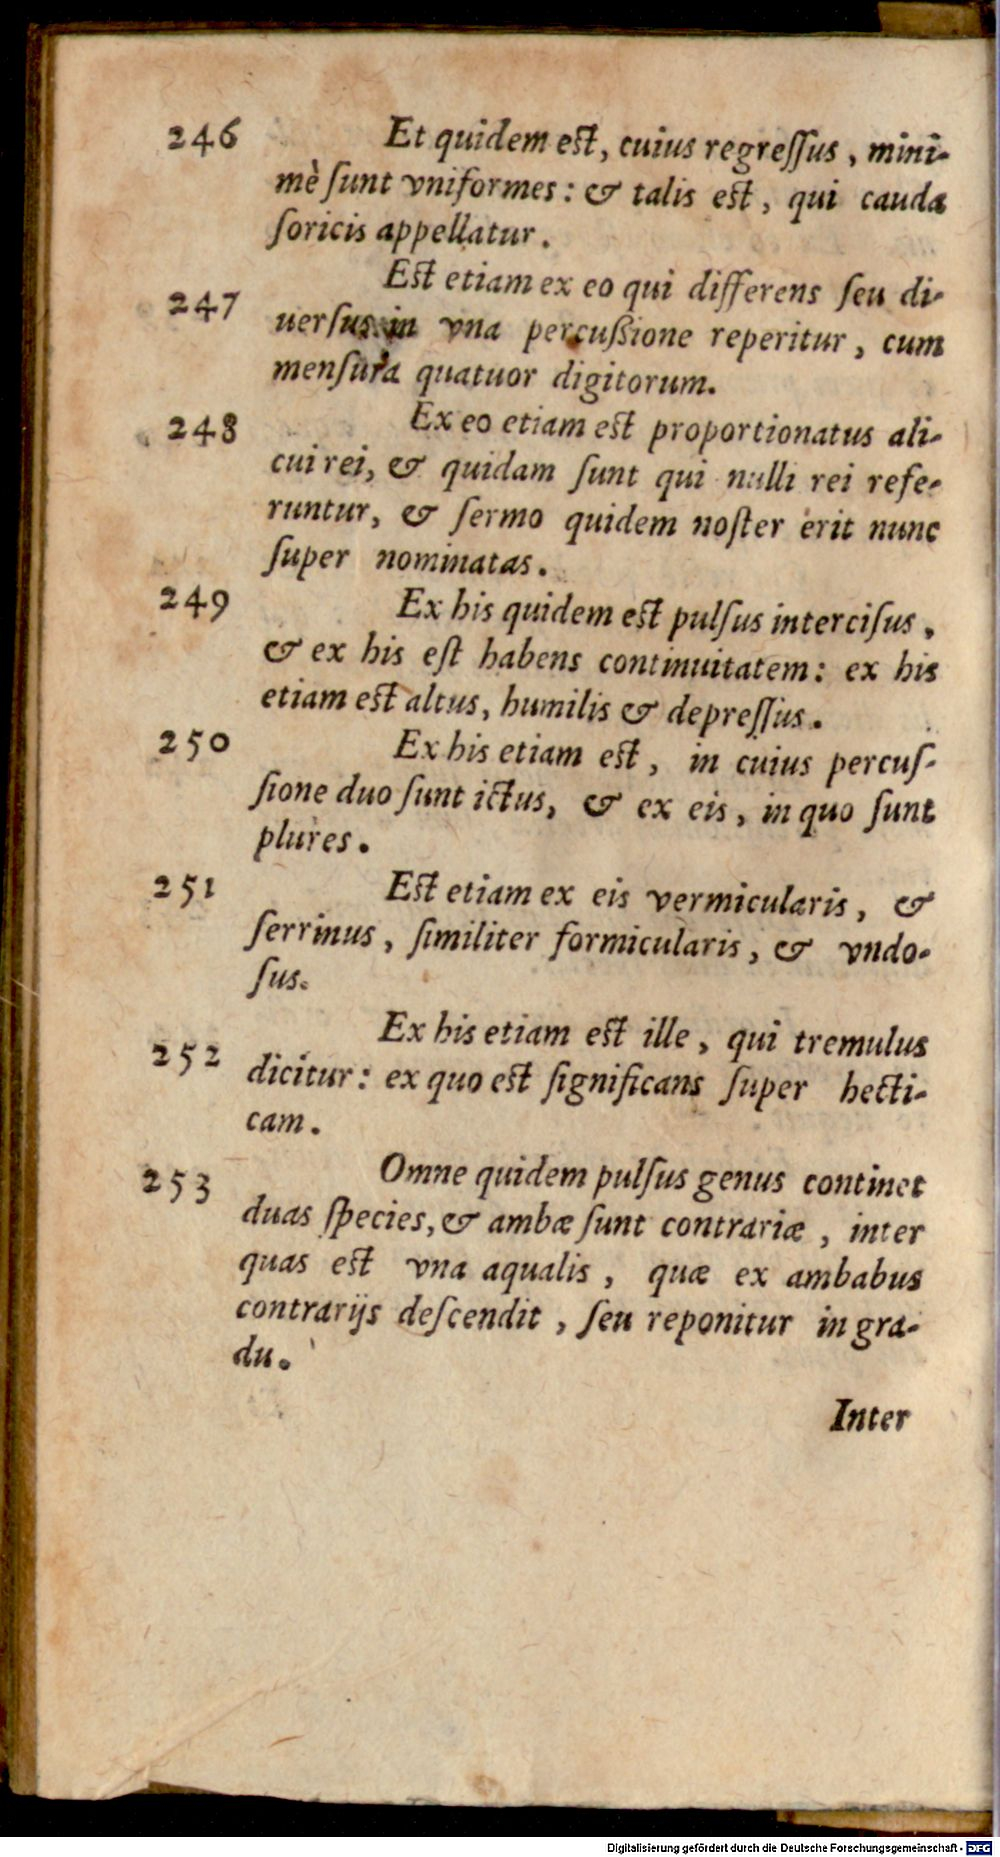 246 Et quidem est, cuius regreſſus, mini-
mè ſunt vniformes: & talis est, qui cauda
ſoricis appellatur.
247 Est etiam ex eo qui differens ſeu di-
uerſus in vna percuſsione reperitur, cum
menſura quatuor digitorum.
248 Ex eo etiam est proportionatus ali-
cui rei, & quidam ſunt qui nulli rei refe-
runtur, & ſermo quidem noſter erit nunc
ſuper nominatas.
249 Ex his quidem est pulſus interciſus,
& ex his eſt habens continuitatem: ex his
etiam est altus, humilis & depreſſus.
250 Ex his etiam est, in cuius percuſ-
ſione duo ſunt ictus, & ex eis, in quo ſunt
plures.
251 Est etiam ex eis vermicularis, &
ſerrinus, ſimiliter formicularis, & vndo-
ſus.
252 Ex his etiam est ille, qui tremulus
dicitur: ex quo est ſignificans ſuper hecti-
cam.
253 Omne quidem pulſus genus continet
duas ſpecies, & ambæ ſunt contrariæ, inter
quas est vna aqualis, quæ ex ambabus
contrarijs deſcendit, ſeu reponitur in gra-
du.
Inter
Digitalisierung gefördert durch die Deutsche Forschungsgemeinschaft - DFG